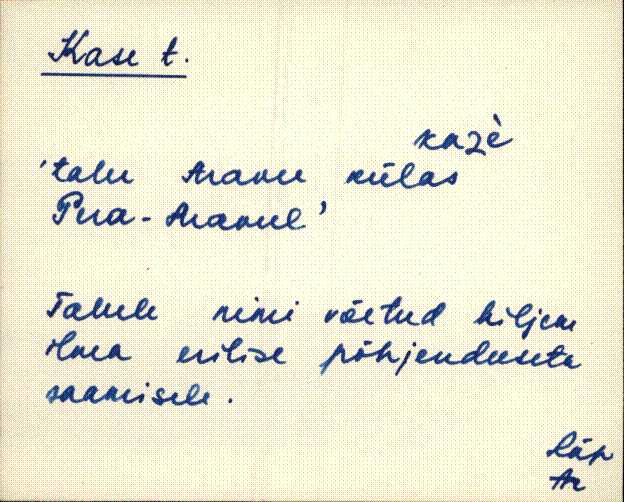 Kase t.
kaзè
'talu Aravu külas
Pera-Aravul'
Talule nimi võetud hiljem
ilma erilise põhjenduseta
saamisele.
Räp
Ar